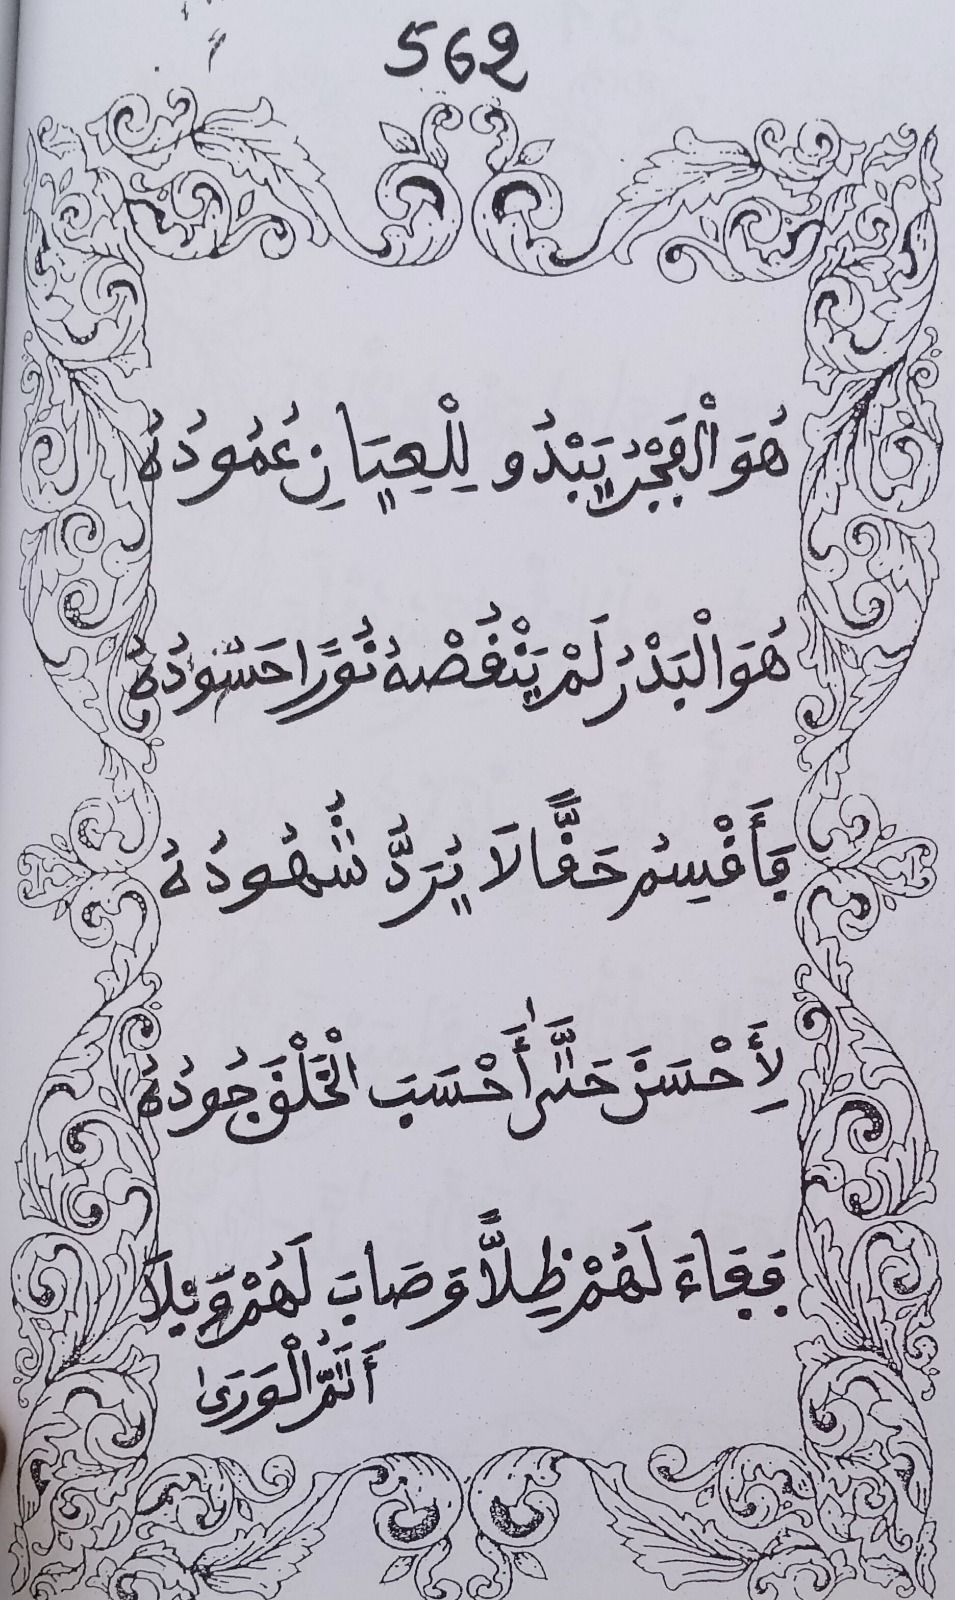 562
هُوَ الْفَجْرُ يَبْدُو لِلْعِيَانِ عَمُودُهُ
هُوَ الْبَدْرُ لَمْ يَنْقُصْهُ نُورًا حَسُودُهُ
فَأُقْسِمُ حَقًّا لَا يُرَدُّ شُهُودُهُ
لَأَحْسَنَ حَتَّى أَحْسَبَ الْخَلْقَ جُودُهُ
فَفَاءَ لَهُمْ ظِلًّا وَصَابَ لَهُمْ وَبْلَا
أَتَمُّ الْوَرَى